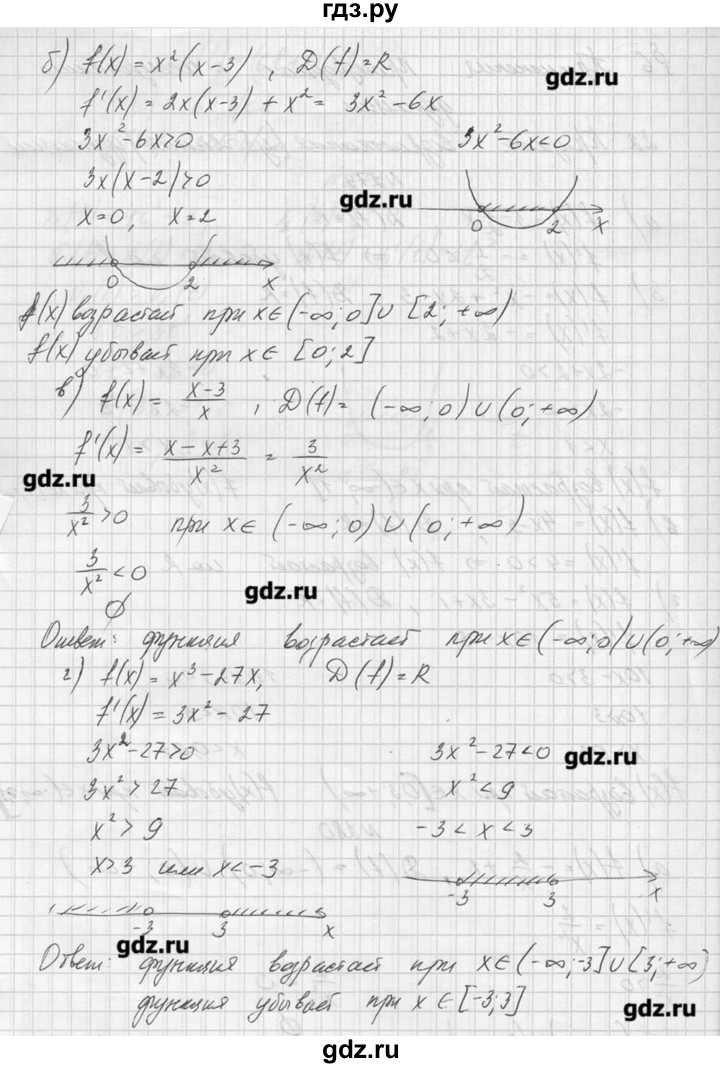 гдз.ру
б) f(x) = x²(x-3) , D(f)=R
gdz.ru
f'(x) = 2x(x-3) + x² = 3x² - 6x
3x² - 6x > 0 3x² - 6x < 0
3x(x-2) > 0
gdz.ru
x=0, x=2
0 2 x
0 2 x
f(x) возрастает при x∈(-∞; 0]∪[2; +∞)
f(x) убывает при x∈ [0; 2]
в) f(x) = (x-3)/x , D(f) = (-∞; 0)∪(0; +∞)
f'(x) = (x-x+3)/x² = 3/x²
gdz.ru
3/x² > 0 при x∈ (-∞; 0)∪(0; +∞)
3/x² < 0
gdz.ru
∅
Ответ: функция возрастает при x∈(-∞; 0)∪(0; +∞)
г) f(x) = x³ - 27x, D(f) = R
f'(x) = 3x² - 27
3x² - 27 > 0 3x² - 27 < 0
gdz.ru
3x² > 27 x² < 9
x² > 9 -3 < x < 3
x > 3 или x < -3
-3 3 x
-3 3 x
gdz.ru
Ответ: функция возрастает при x∈(-∞; -3]∪[3; +∞)
функция убывает при x∈[-3; 3]
gdz.ru
gdz.ru